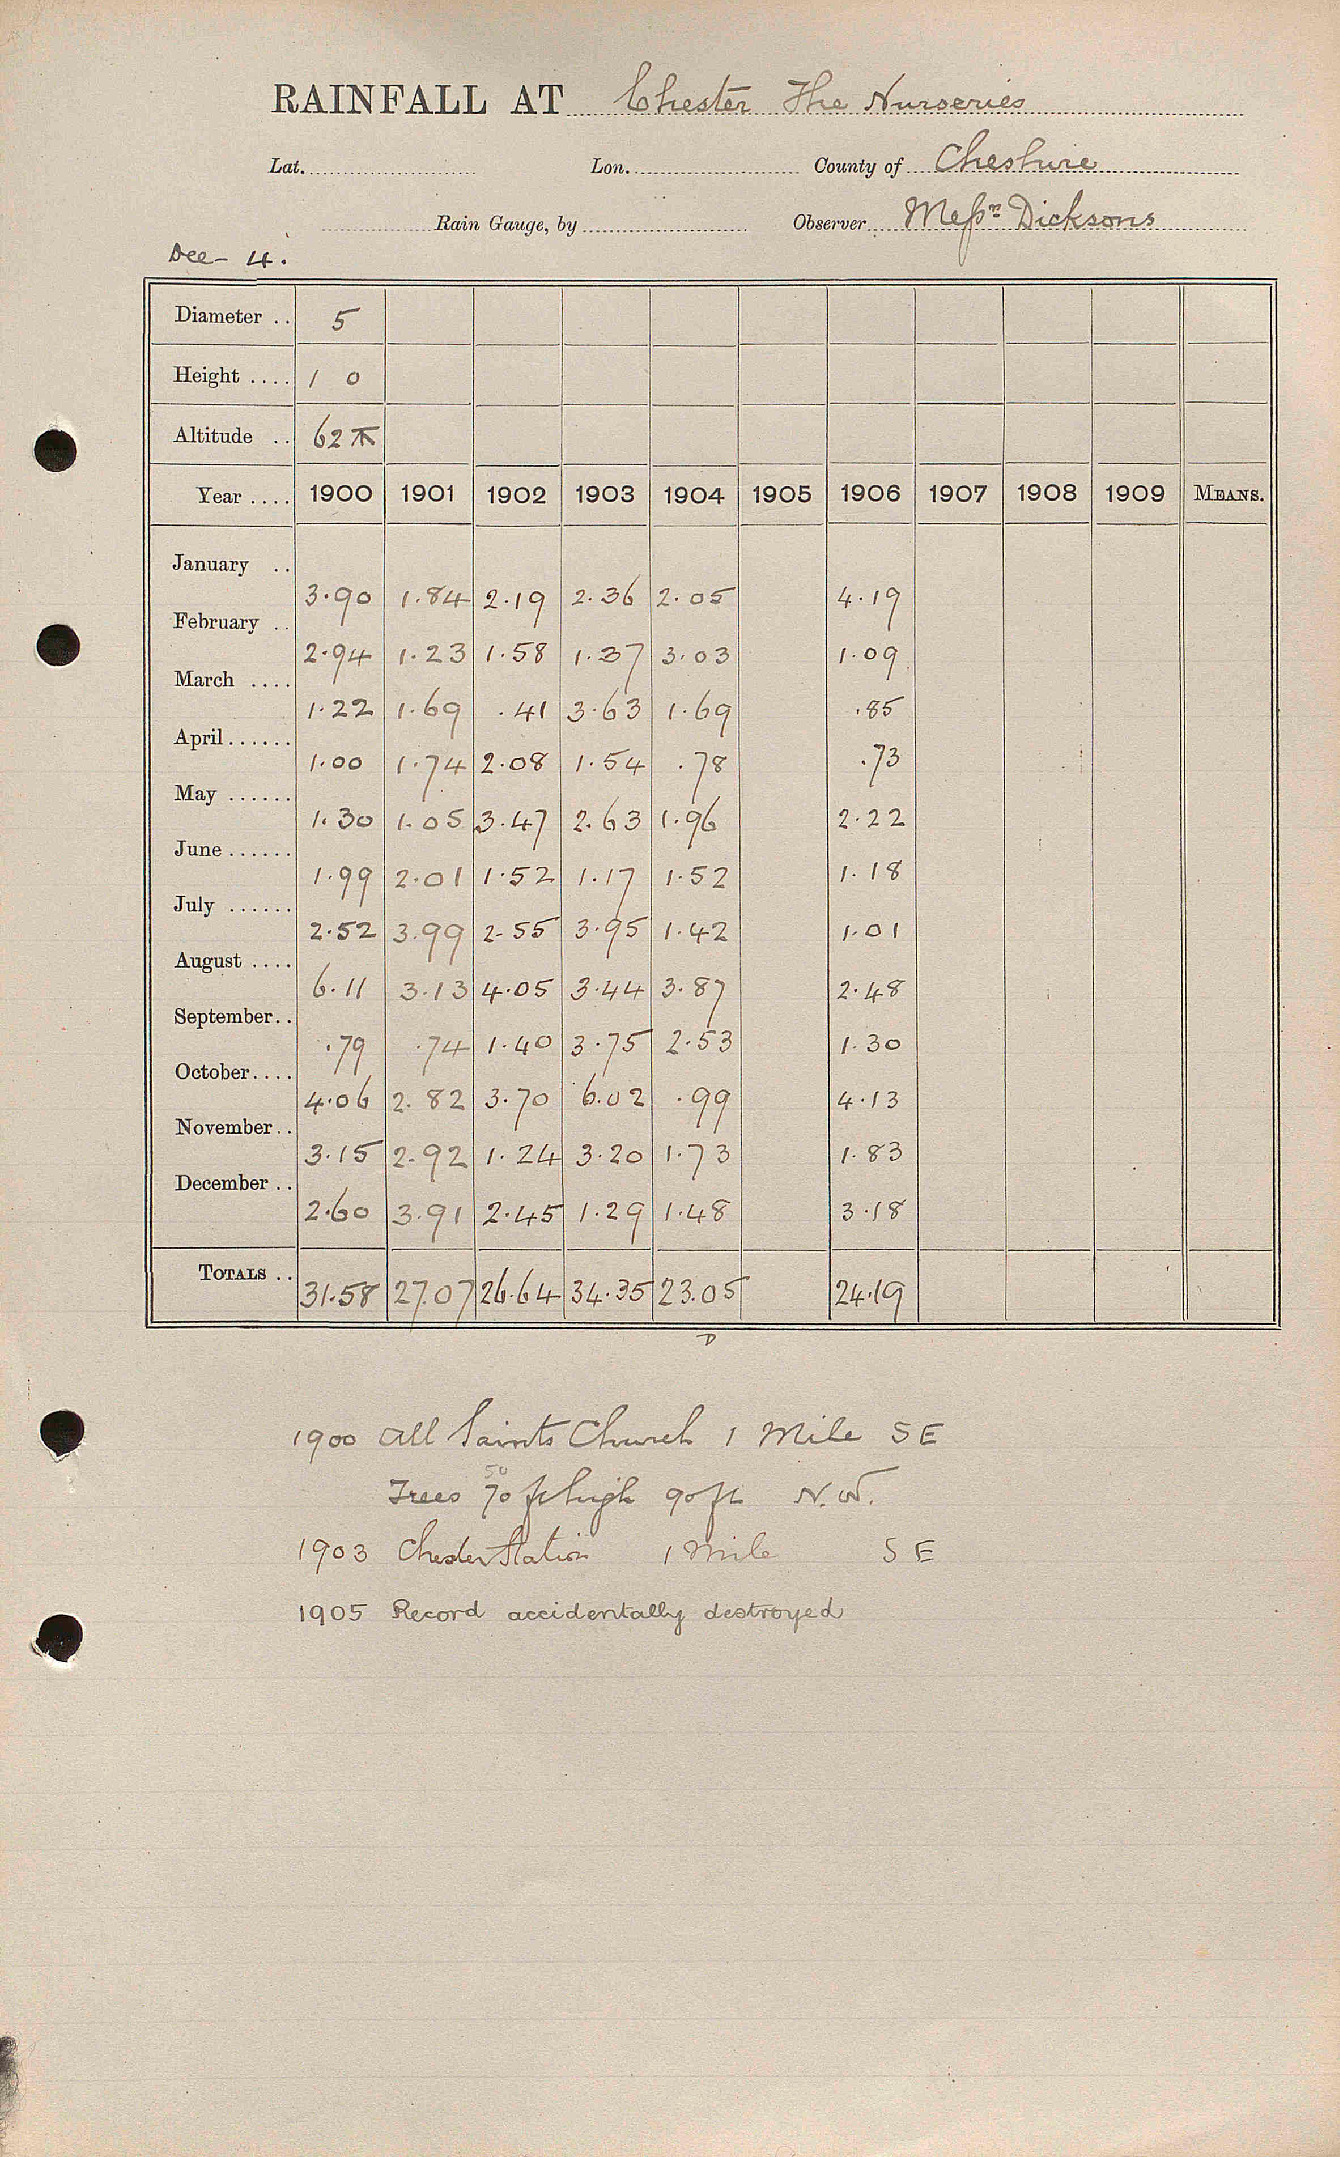 RAINFALL AT Chester The Nurseries
Lat. Lon. County of Cheshire
Rain Gauge, by Observer Messrs Dicksons
Dec- 4.
Diameter .. 5
Height .... 1 0
Altitude .. 62
Year .... 1900 1901 1902 1903 1904 1905 1906 1907 1908 1909 MEANS.
January .. 3.90 1.84 2.19 2.36 2.05 4.19
February .. 2.94 1.23 1.58 1.37 3.03 1.09
March .... 1.22 1.69 .41 3.63 1.69 .85
April ...... 1.00 1.74 2.08 1.54 .78 .73
May ...... 1.30 1.05 3.47 2.63 1.96 2.22
June ...... 1.99 2.01 1.52 1.17 1.52 1.18
July ...... 2.52 3.99 2.55 3.95 1.42 1.01
August .... 6.11 3.13 4.05 3.44 3.87 2.48
September .. .79 .74 1.40 3.75 2.53 1.30
October .... 4.06 2.82 3.70 6.02 .99 4.13
November .. 3.15 2.92 1.24 3.20 1.73 1.83
December .. 2.60 3.91 2.45 1.29 1.48 3.18
TOTALS .. 31.58 27.07 26.64 34.35 23.05 24.19
D
1900 All Saints Church 1 Mile SE
50
Trees 70 ft high 90 ft N.W.
1903 Chester Station 1 Mile SE
1905 Record accidentally destroyed